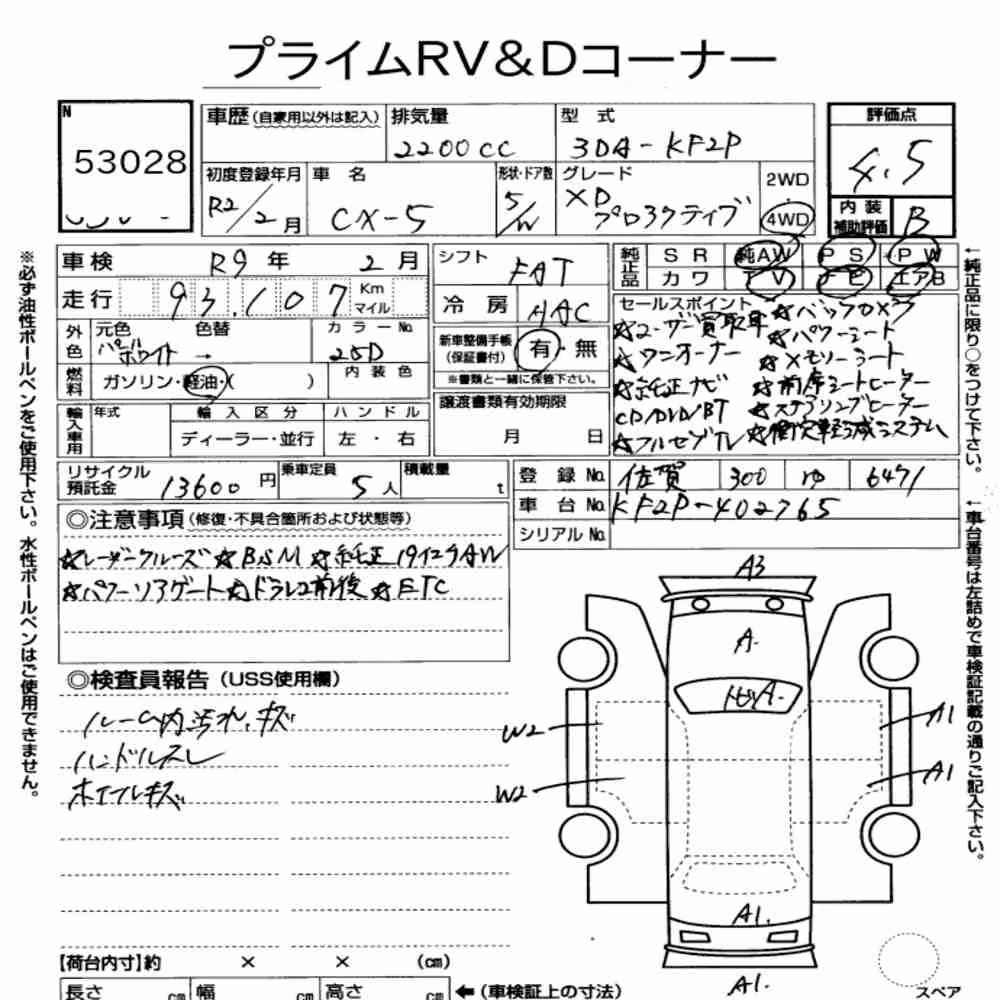 プライムRV&Dコーナー
N
53028
車歴 (自家用以外は記入)
排気量
2200cc
型式
3DA-KF2P
評価点
4.5
初度登録年月
R2/2月
車名
CX-5
形状・ドア数
5/W
グレード
XD
プロアクティブ
2WD
4WD
内装
補助評価
B
車検
R9年 2月
走行
93,107
Km
マイル
外色
元色
パールホワイト
色替
→
カラーNo.
25D
燃料
ガソリン・軽油・( )
内装色
輸入車用
年式
輸入区分
ディーラー・並行
ハンドル
左・右
シフト
FAT
冷房
AAC
新車整備手帳
(保証書付)
有・無
※書類と一緒に保管下さい。
譲渡書類有効期限
月 日
純正品
SR 純AW PS PW
カワ TV エアB
セールスポイント
☆ユーザー買取車
☆ワンオーナー
☆純正ナビ
CD/DVD/BT
☆フルセグTV
☆パワーシート
☆メモリーシート
☆前席シートヒーター
☆ステアリングヒーター
☆衝突軽減システム
リサイクル預託金
13600円
乗車定員
5人
積載量
t
登録No.
佐賀 300 6471
車台No.
KF2P-402765
シリアルNo.
◎注意事項 (修復・不具合箇所および状態等)
☆レーダークルーズ ☆BSM ☆純正19インチAW
☆パワーリアゲート ☆ドラレコ前後 ☆ETC
◎検査員報告 (USS使用欄)
ルーム内汚れ、キズ
ハンドルスレ
ホイールキズ
A3
A.
トビA.
W2
W2
A1
A1
A1.
A1.
スペア
【荷台内寸】約 × × (cm)
長さ cm 幅 cm 高さ cm
←(車検証上の寸法)
※必ず油性ボールペンをご使用下さい。水性ボールペンはご使用できません。
←純正品に限り○をつけて下さい。
←車台番号は左詰めで車検証記載の通りご記入下さい。